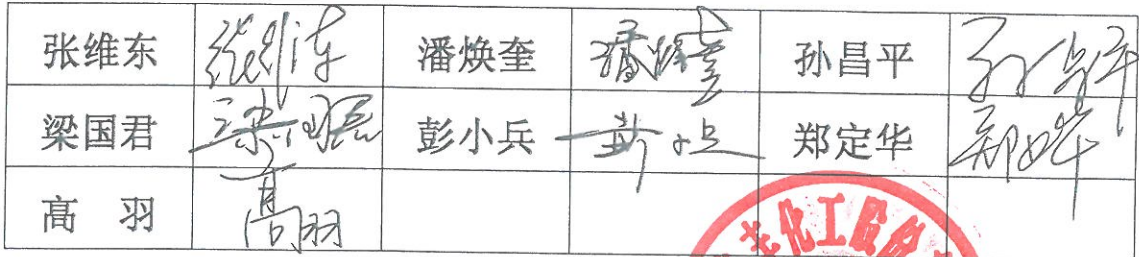 张维东 张维东 潘焕奎 潘焕奎 孙昌平 孙昌平
梁国君 梁国君 彭小兵 彭小兵 郑定华 郑定华
高 羽 高羽
化工股份